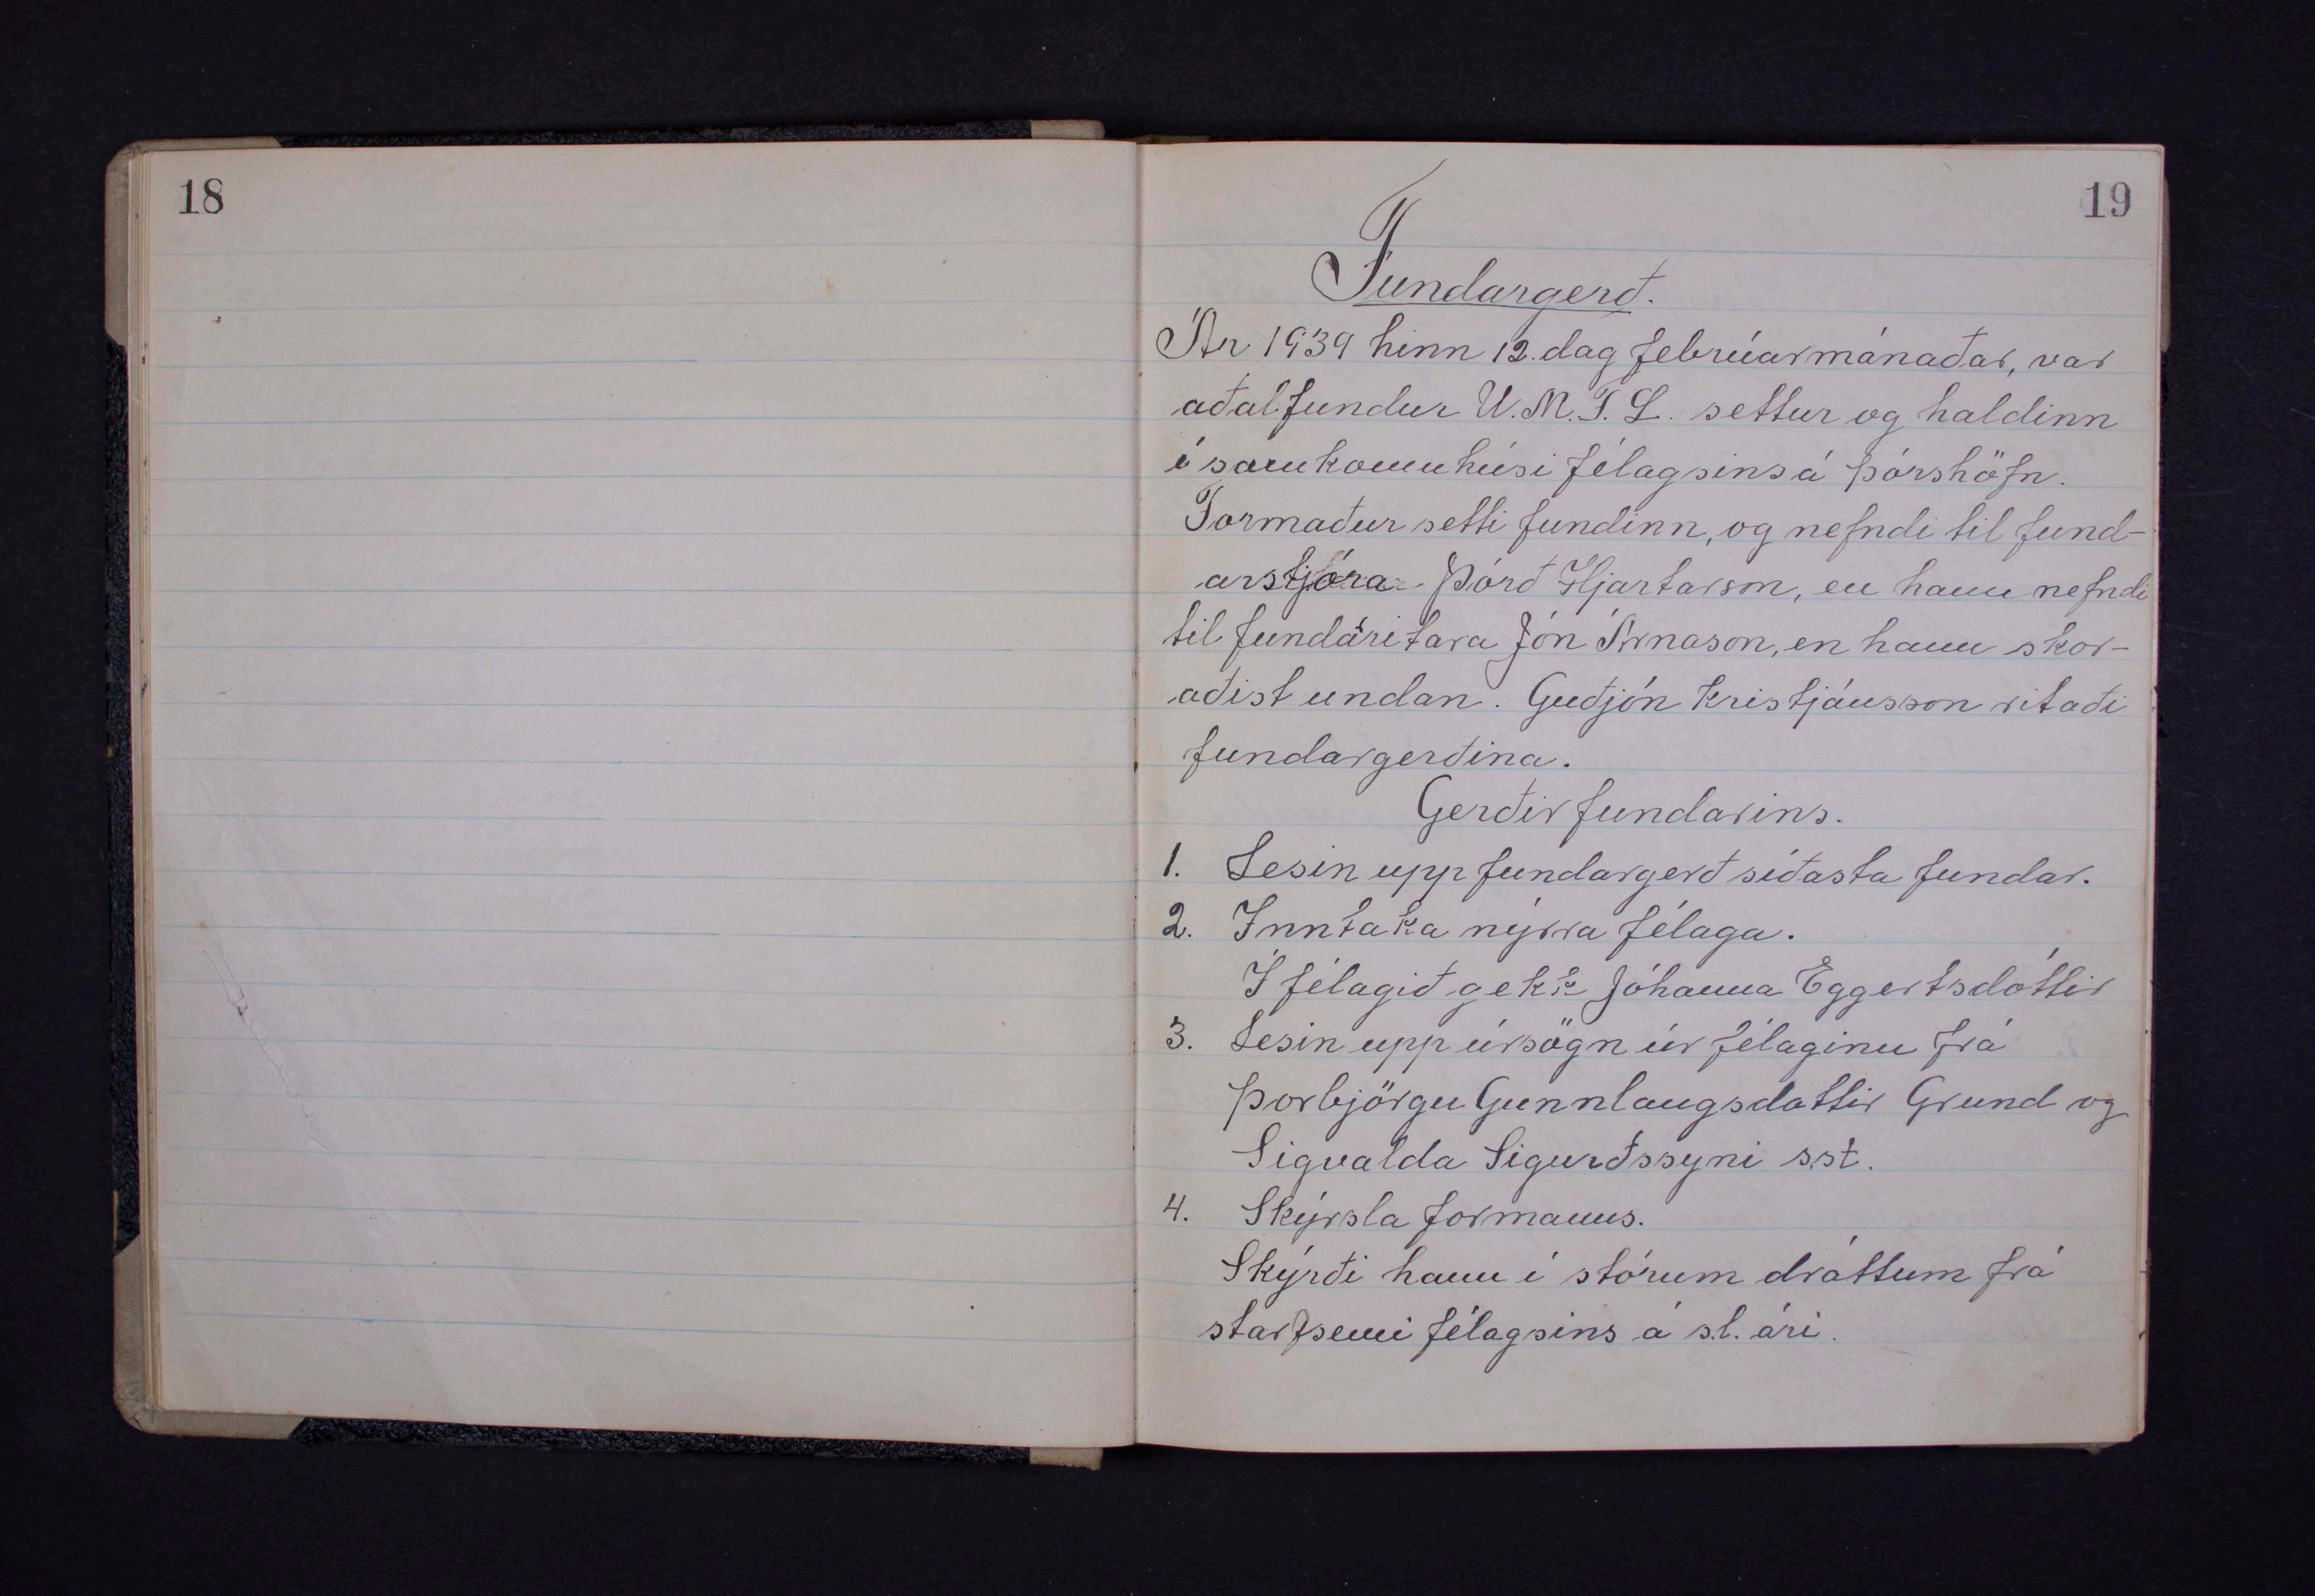 18
19
Fundargerð.
Ár 1939 hinn 12. dag febrúarmánaðar, var
aðalfundur U.M.F.L. settur og haldinn
í samkomuhúsi félagsins á Þórshöfn.
Formaður setti fundinn, og nefndi til fund-
arstjóra Þórð Hjartarson, en hann nefndi
til fundarritara Jón Árnason, en hann skor-
aðist undan. Guðjón Kristjánsson ritaði
fundargerðina.
Gerðir fundarins.
1. Lesin upp fundargerð síðasta fundar.
2. Inntaka nýrra félaga.
Í félagið gekk Jóhanna Eggertsdóttir
3. Lesin upp úrsögn úr félaginu frá
Þorbjörgu Gunnlaugsdottir Grund og
Sigvalda Sigurðssyni s.st.
4. Skýrsla formanns.
Skýrði hann í stórum dráttum frá
starfsemi félagsins á s.l. ári.